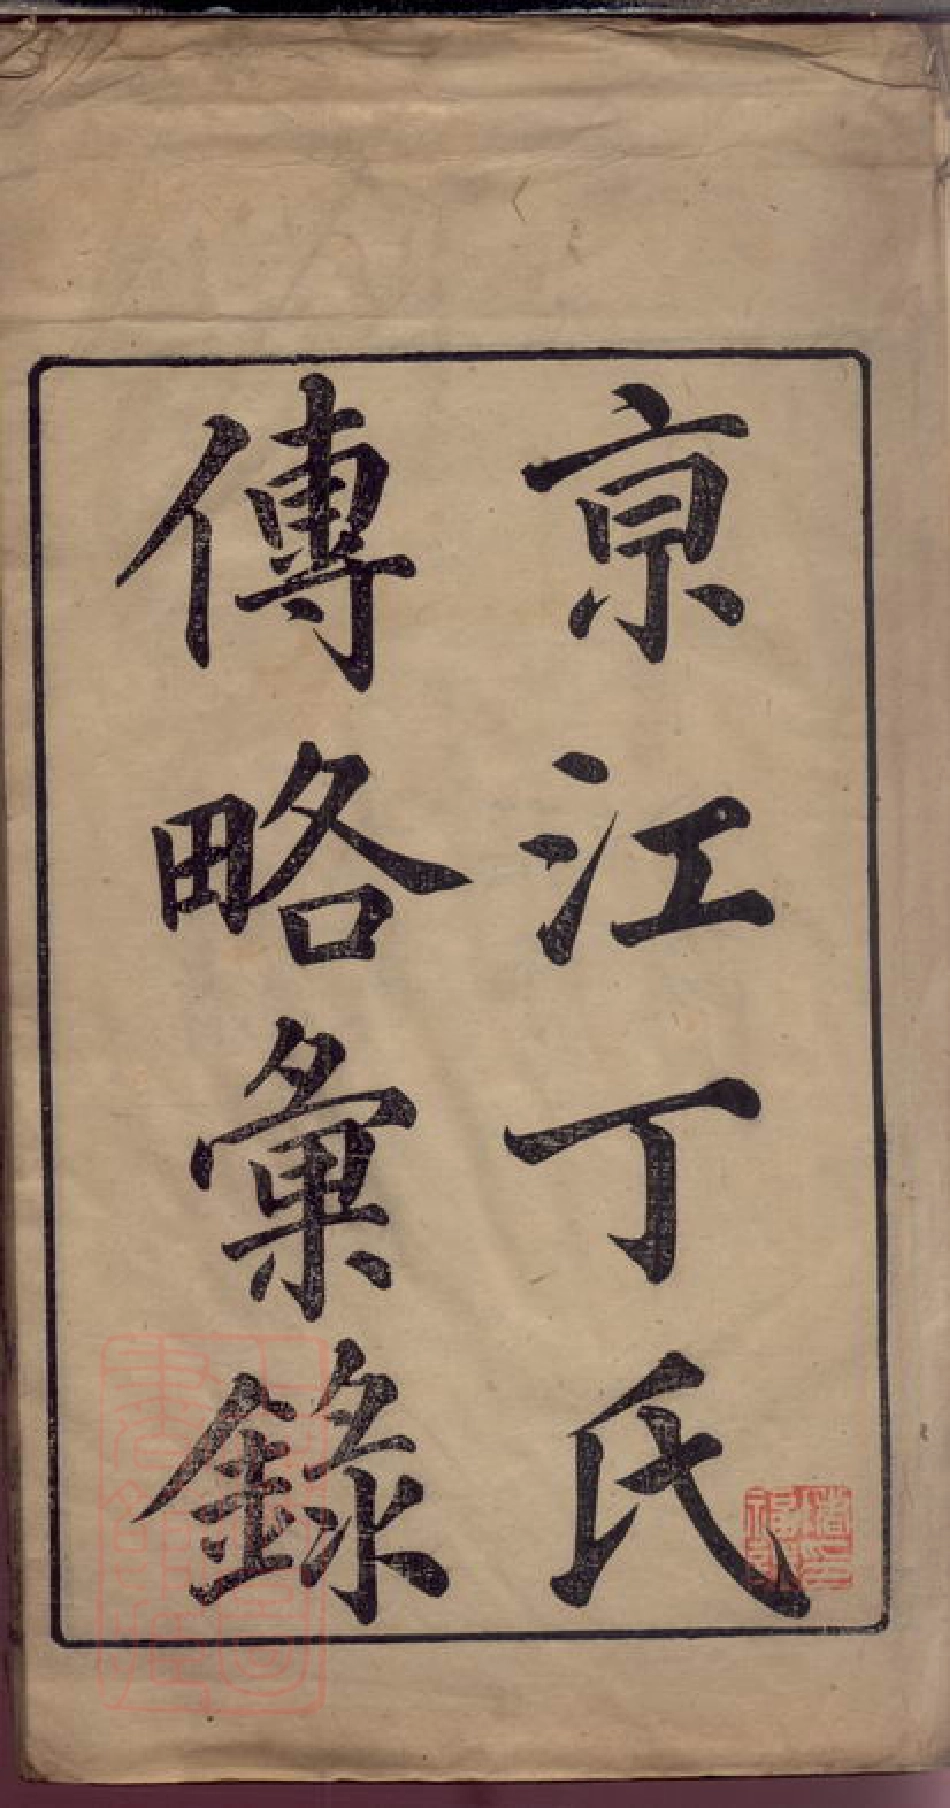 亰江丁氏
傳略彙錄